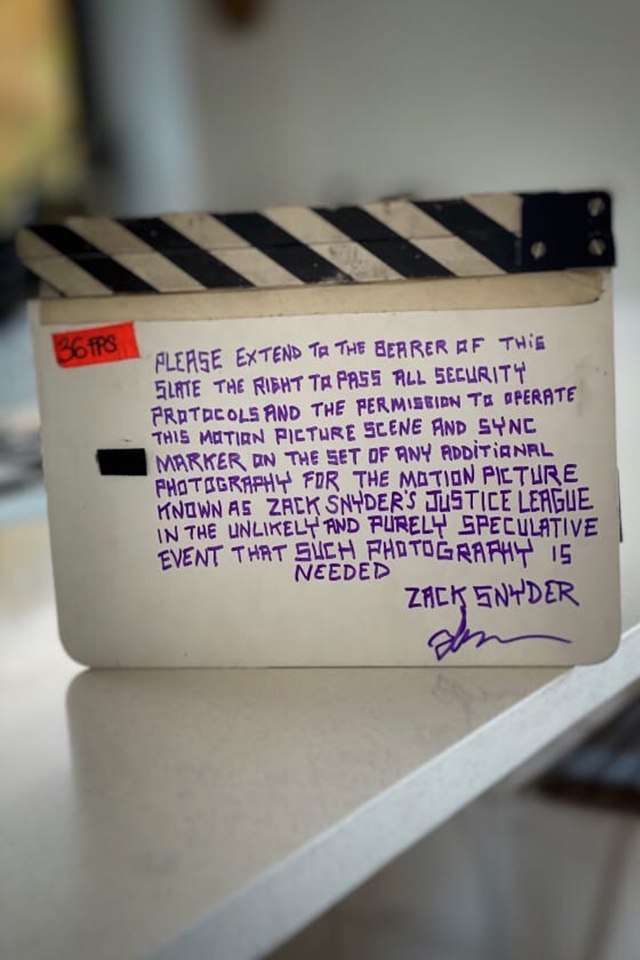 36 FPS
PLEASE EXTEND TO THE BEARER OF THIS
SLATE THE RIGHT TO PASS ALL SECURITY
PROTOCOLS AND THE PERMISSION TO OPERATE
THIS MOTION PICTURE SCENE AND SYNC
MARKER ON THE SET OF ANY ADDITIONAL
PHOTOGRAPHY FOR THE MOTION PICTURE
KNOWN AS ZACK SNYDER'S JUSTICE LEAGUE
IN THE UNLIKELY AND PURELY SPECULATIVE
EVENT THAT SUCH PHOTOGRAPHY IS
NEEDED
ZACK SNYDER